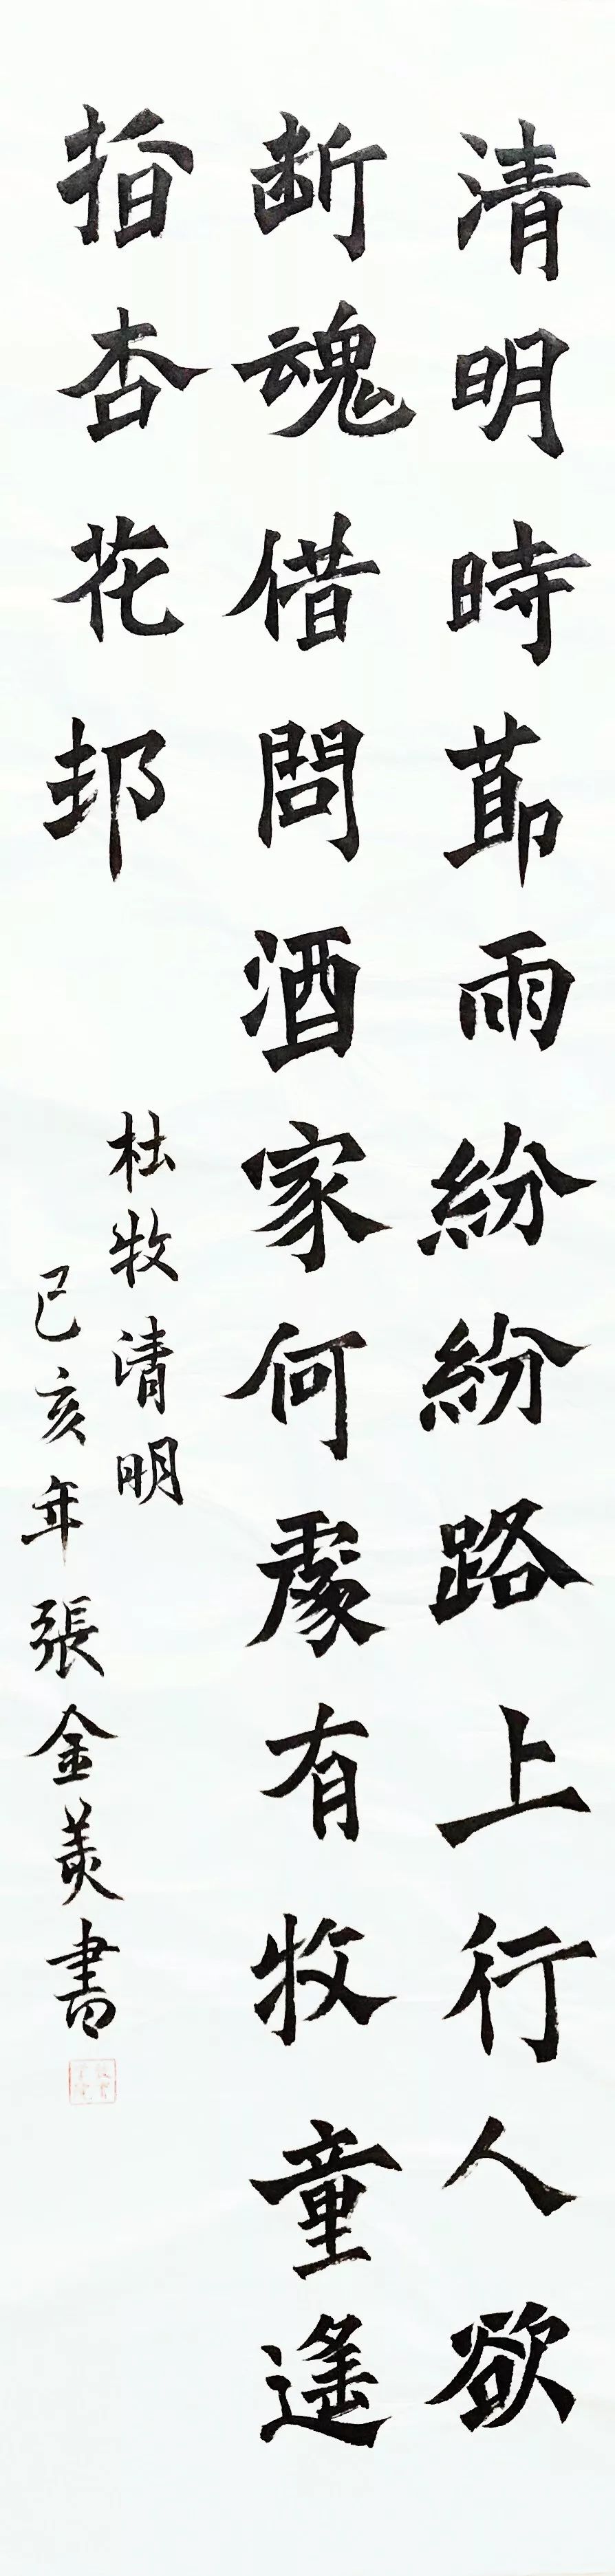 清明時節雨紛紛路上行人欲
断魂借問酒家何處有牧童遙
指杏花邨
杜牧清明
己亥年張金美書